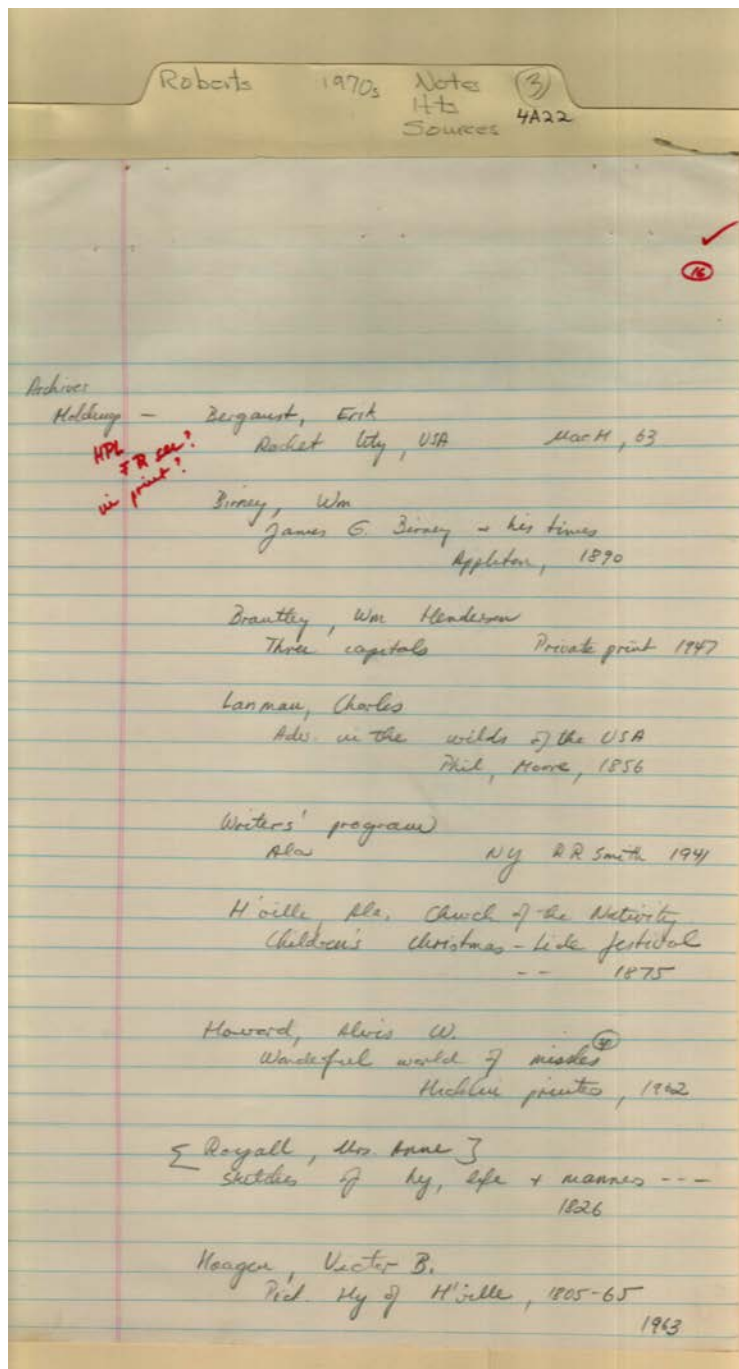 Roberts 1970s Notes 3
Hts
Sources 4A22
16
Archives
Holdings - Bergaust, Erik
Rocket City, USA MacM, 63
HPL
FR see?
in print?
Birney, Wm
James G. Birney & his times
Appleton, 1890
Brantley, Wm Henderson
Three capitals Private print 1947
Lanman, Charles
Adv. in the wilds of the USA
Phil, Moore, 1856
Writers' program
Ala NY RR Smith 1941
H'ville, Ala. Church of the Nativity
Children's Christmas-tide festival
-- 1875
Howard, Alvis W.
Wonderful world of missles
printers, 1962
[Royall, Mrs. Anne]
Sketches of hy, life & manners ---
1826
Haagen, Victor B.
Pict. Hy of H'ville, 1805-65
1963